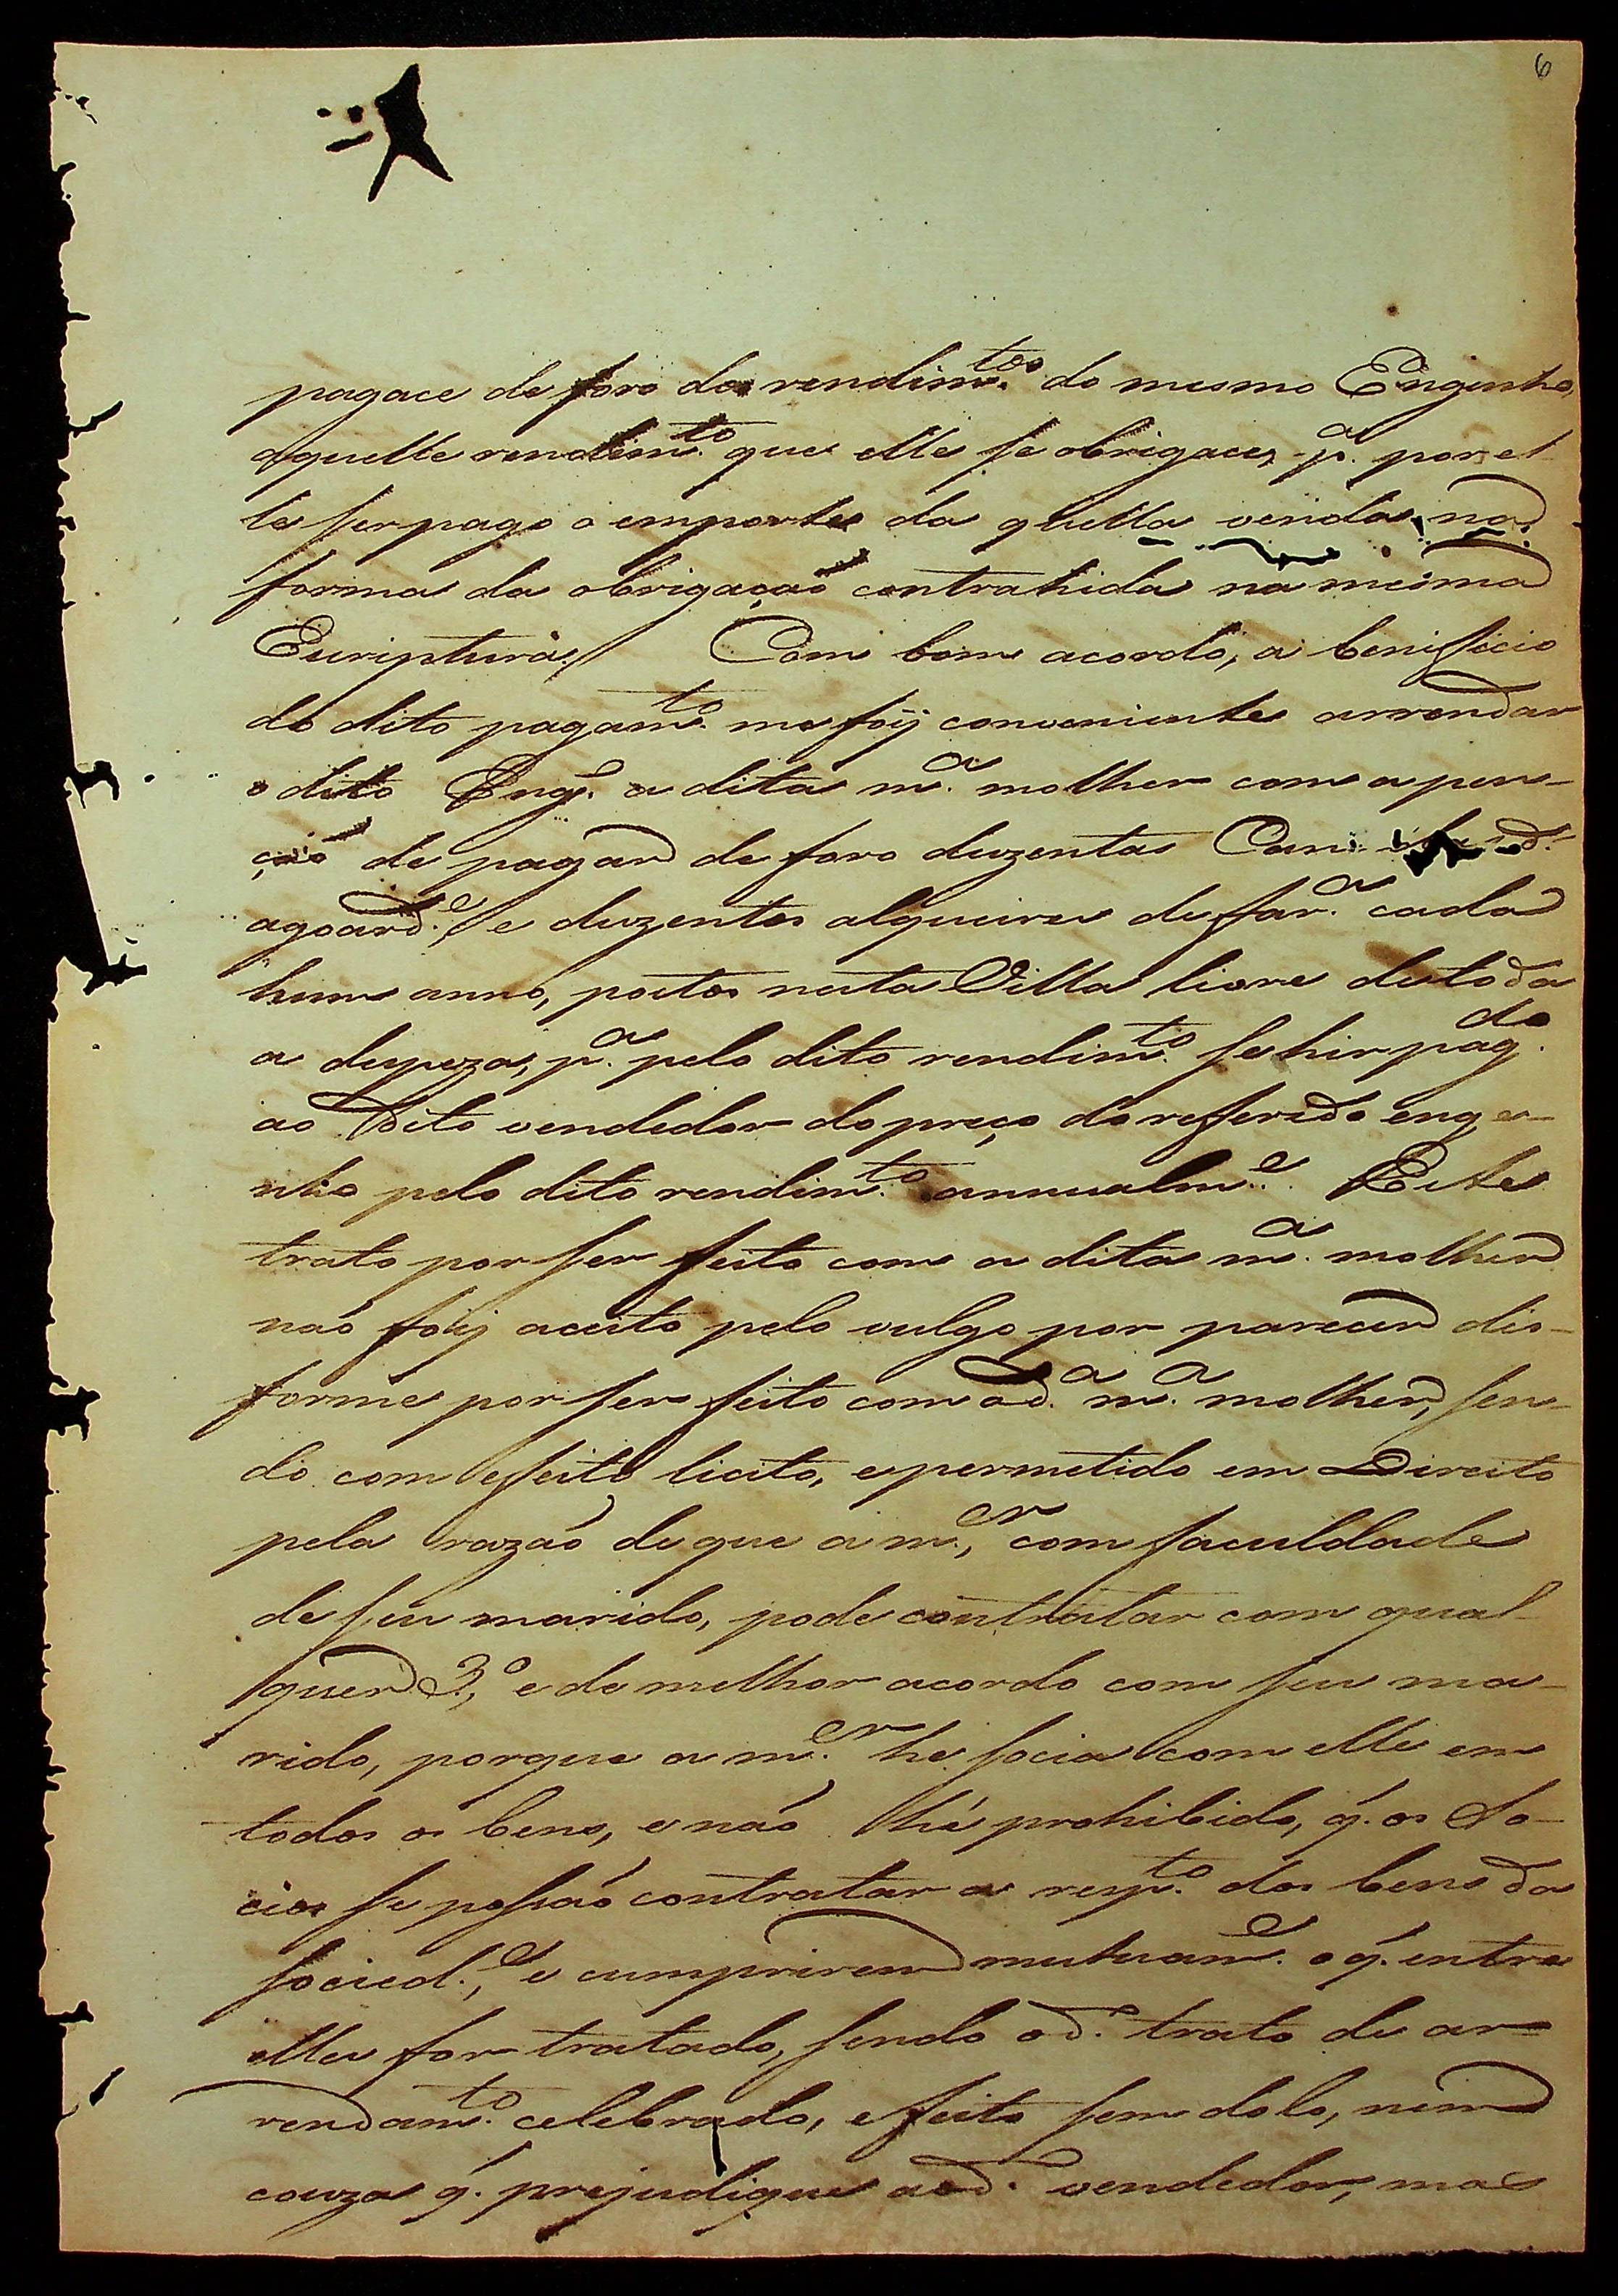 6
pagace de foro dos rendim.tos do mesmo Engenho,
aquelle rendim.to que elle se obrigace, p.a por el
le ser pago o emporte da quella venda na
forma da obrigação contrahida na mesma
Escriptura. Com bom acordo, a benificio
do dito pagam.to me foij conveniente arrendar
o dito Eng.o a dita m.a molher com a pen-
ção de pagar de foro duzentas Can d.
agoard.e, e duzentos alqueires de far.a cada
hum anno, postos nesta Villa livre de toda
a despeza, p.a pelo dito rendim.to se hir pag.do
ao dito vendedor do preço do referido enge-
nho pelo dito rendim.to annualm.e. Este
trato por ser feito com a dita m.a molher
não foij aceito pelo vulgo por parecer dis-
forme por ser feito com a d.a m.a molher, sen-
do com efeito licito, e permetido em Direito
pela razão de que a m.er, com faculdade
de seu marido, pode contratar com qual-
quer 3.o, e do melhor acordo com seu ma-
rido, porque a m.er he socia com elle em
todos os bens, e não hé prohibido, q. os So-
cios se possão contratar a resp.to dos bens da
socied.e, e cumprirem mutuam.e o q. entre
elles for tratado, sendo o d.o trato de ar-
rendam.to celebrado, e feito sem dolo, nem
couza q. prejudique ao d.o vendedor, mas